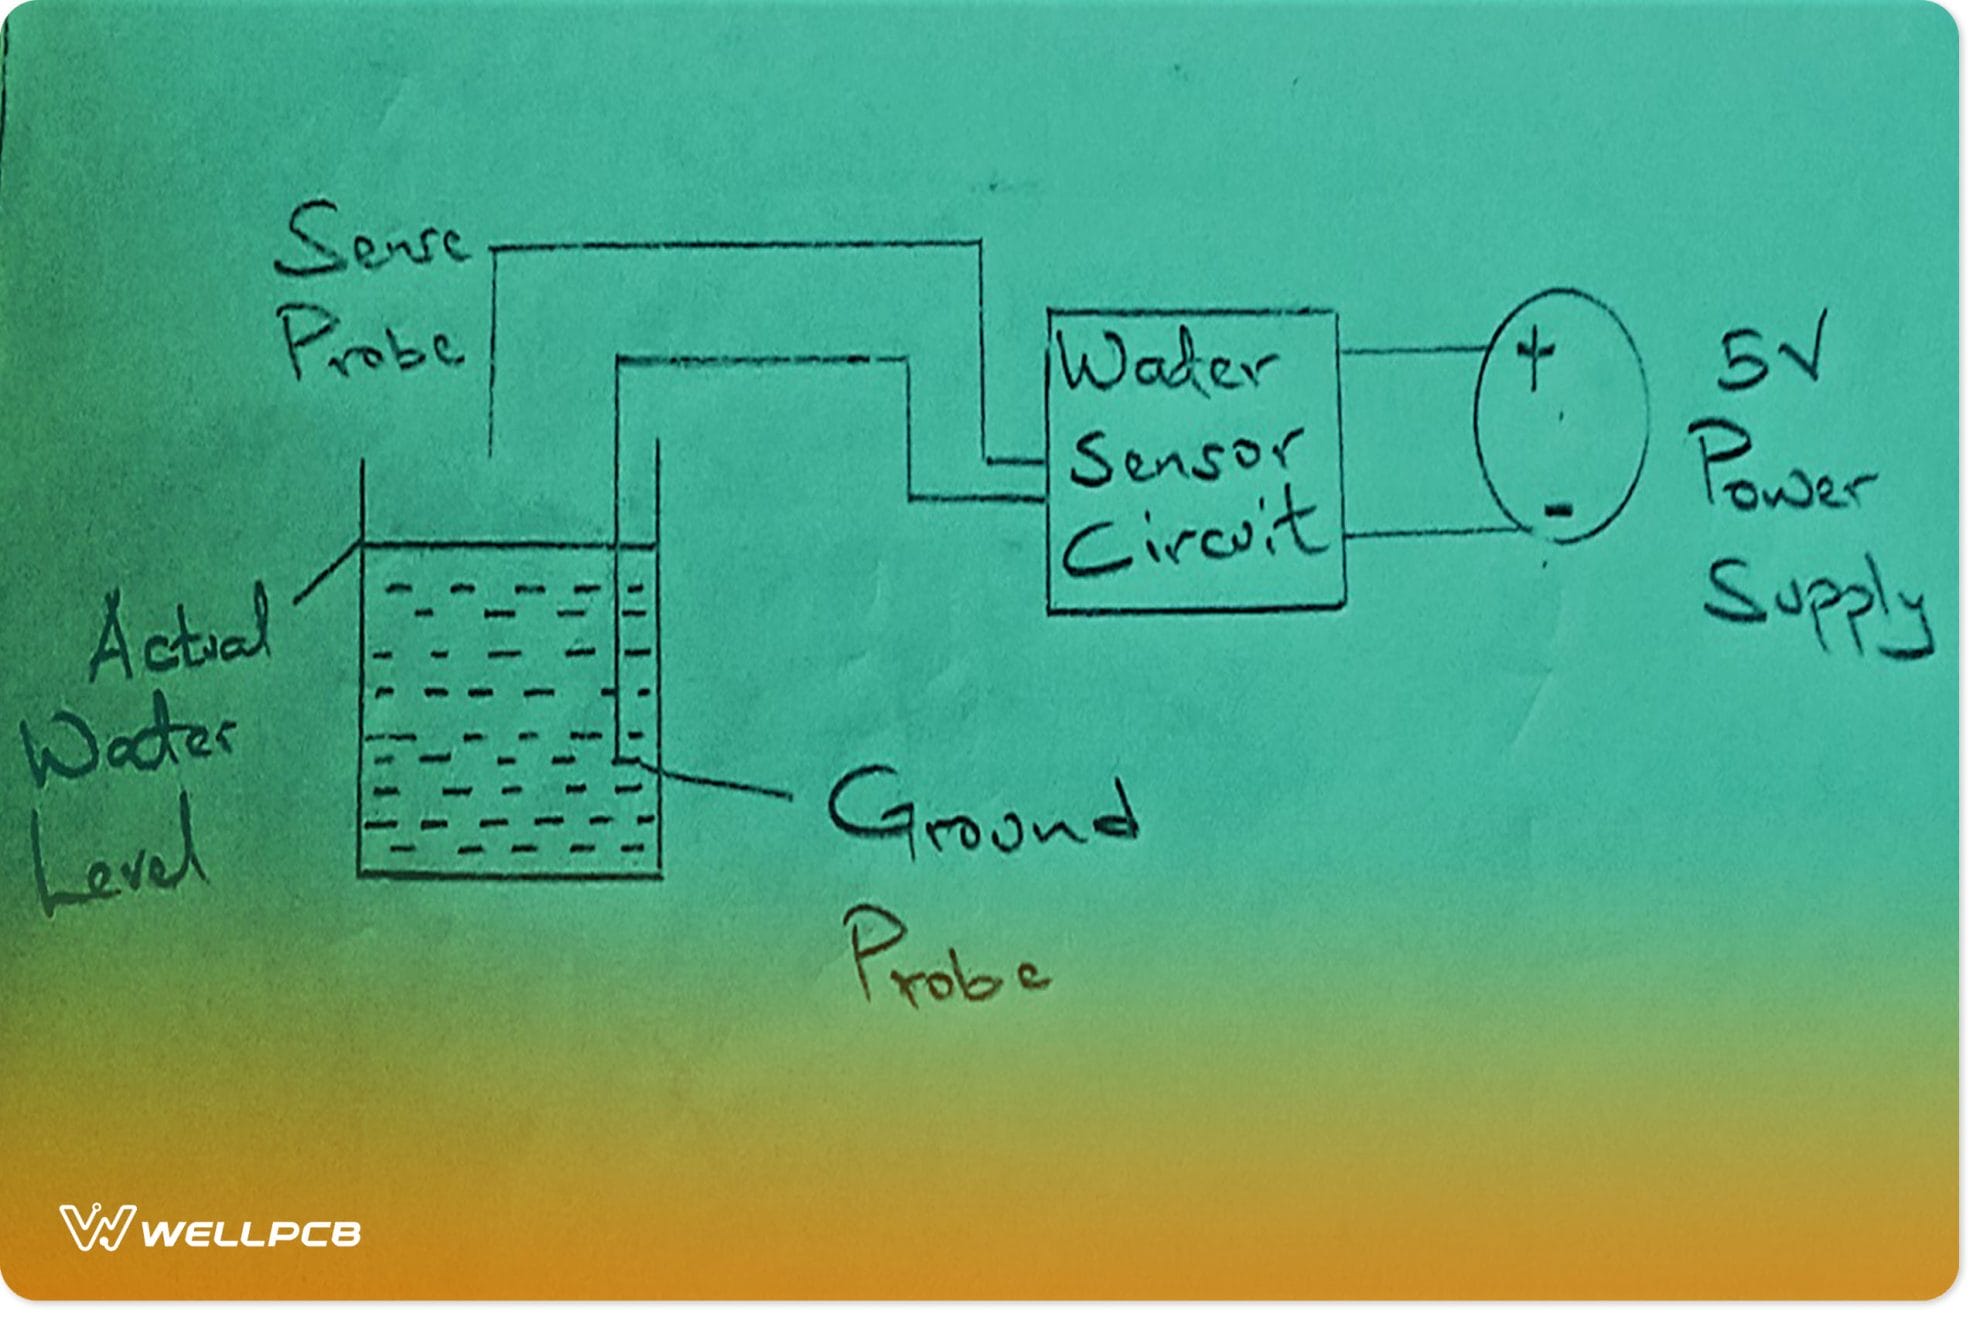 Sense
Probe
Water
Sensor
Circuit
+
-
5V
Power
Supply
Actual
Water
Level
Ground
Probe
WELLPCB